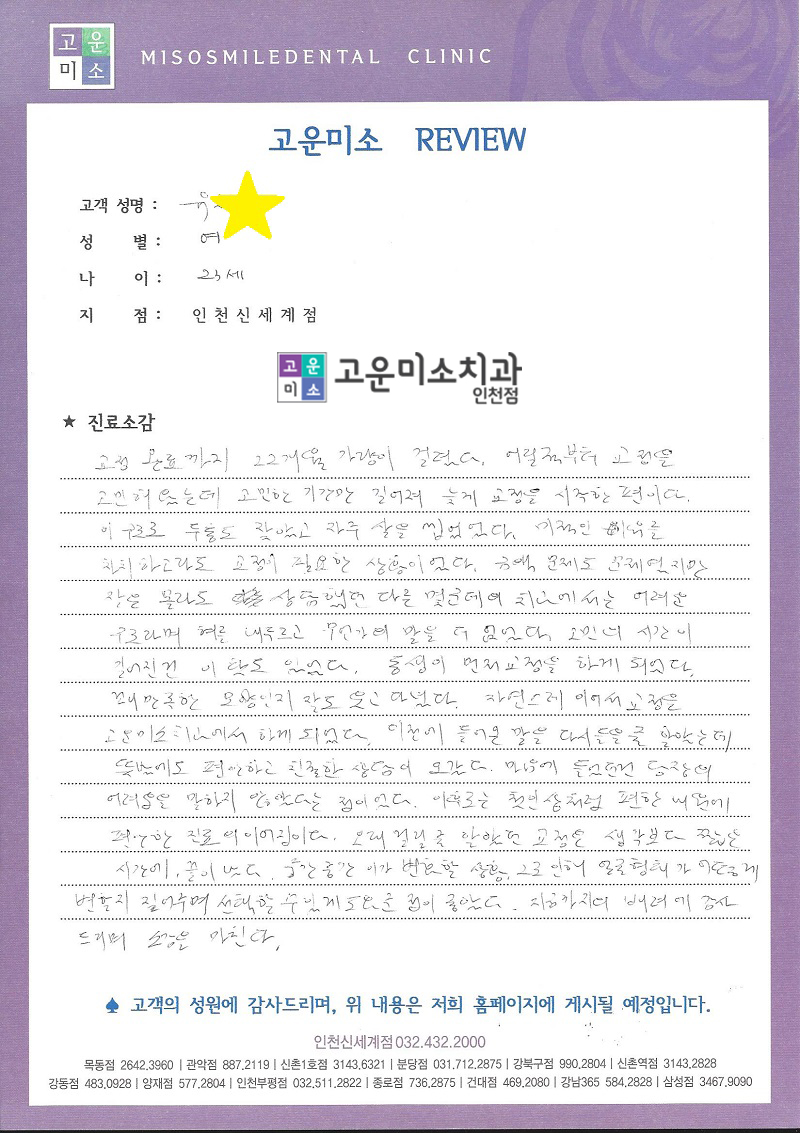 고운
미소
MISOSMILEDENTAL CLINIC
고운미소 REVIEW
고객 성명 : 유
성 별 : 여
나 이 : 23세
지 점 : 인천신세계점
고운
미소
고운미소치과
인천점
★ 진료소감
교정 완료까지 22개월 가량이 걸렸다. 어릴적부터 교정을
고민해 왔는데 고민한 기간만 길어져 늦게 교정을 시작한 편이다.
이 구조로 두통도 잦았고 자주 살을 씹었었다. 미적인 이유를
차치하고라도 교정이 필요한 상황이었다. 금액 문제도 문제였지만
작은 몰라도 상담했던 다른 몇군데의 치과에서는 어려운
구조라며 혀를 내두르고 무언가의 말을 더 없었다. 고민의 시간이
길어진건 이 탓도 있었다. 동생이 먼저 교정을 하게 되었다.
꽤 만족한 모양인지 잘도 웃고 다녔다. 자연스레 이어서 교정을
고운미소치과에서 하게 되었다. 이전에 들어온 말을 다시 들을 줄 알았는데
뜻밖에도 편안하고 친절한 상담이 오갔다. 마음에 들었던건 당장의
어려움을 말하지 않았다는 점이었다. 이후로는 첫인상처럼 편한 내원에
꾸준한 진료의 이어짐이다. 오래 걸릴 줄 알았던 교정은 생각보다 짧은
시간에, 끝이 났다. 중간중간 이가 변화할 상황, 그로 인해 얼굴형태가 어떻게
변할지 짚어주며 선택할 수 있게 도와준 점이 좋았다. 지금까지의 배려에 감사
드리며 소감을 마친다.
♠ 고객의 성원에 감사드리며, 위 내용은 저희 홈페이지에 게시될 예정입니다.
인천신세계점 032.432.2000
목동점 2642.3960 | 관악점 887.2119 | 신촌1호점 3143.6321 | 분당점 031.712.2875 | 강북구점 990.2804 | 신촌역점 3143.2828
강동점 483.0928 | 양재점 577.2804 | 인천부평점 032.511.2822 | 종로점 736.2875 | 건대점 469.2080 | 강남365 584.2828 | 삼성점 3467.9090